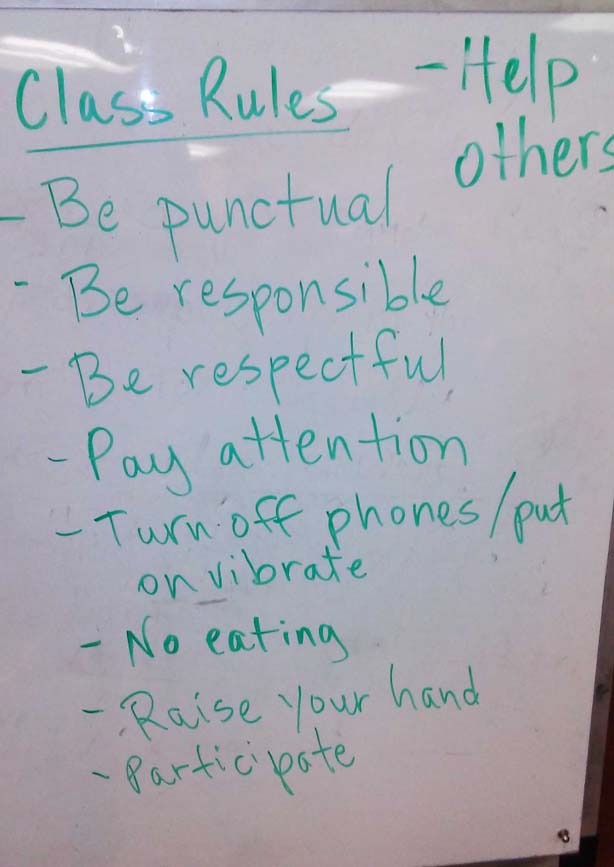 Class Rules
- Be punctual
- Be responsible
- Be respectful
- Pay attention
- Turn off phones/put
on vibrate
- No eating
- Raise your hand
- Participate
- Help
others